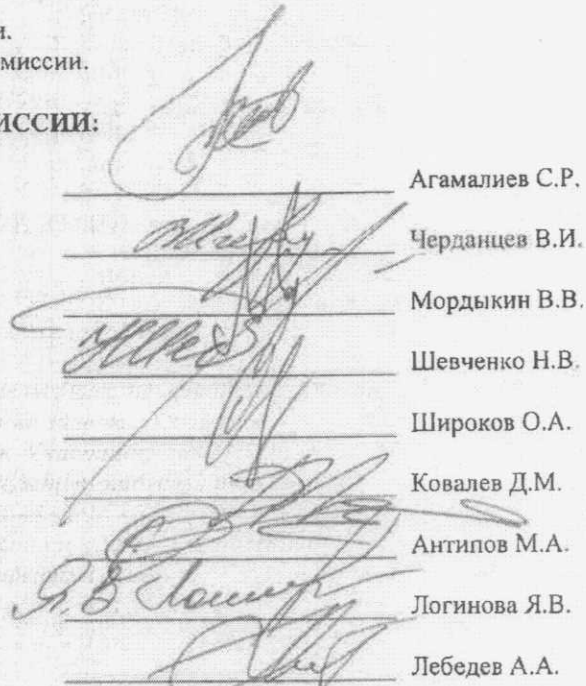 и.
миссии.
ИССИИ:
Агамалиев С.Р.
Черданцев В.И.
Мордыкин В.В.
Шевченко Н.В.
Широков О.А.
Ковалев Д.М.
Антипов М.А.
Логинова Я.В.
Лебедев А.А.